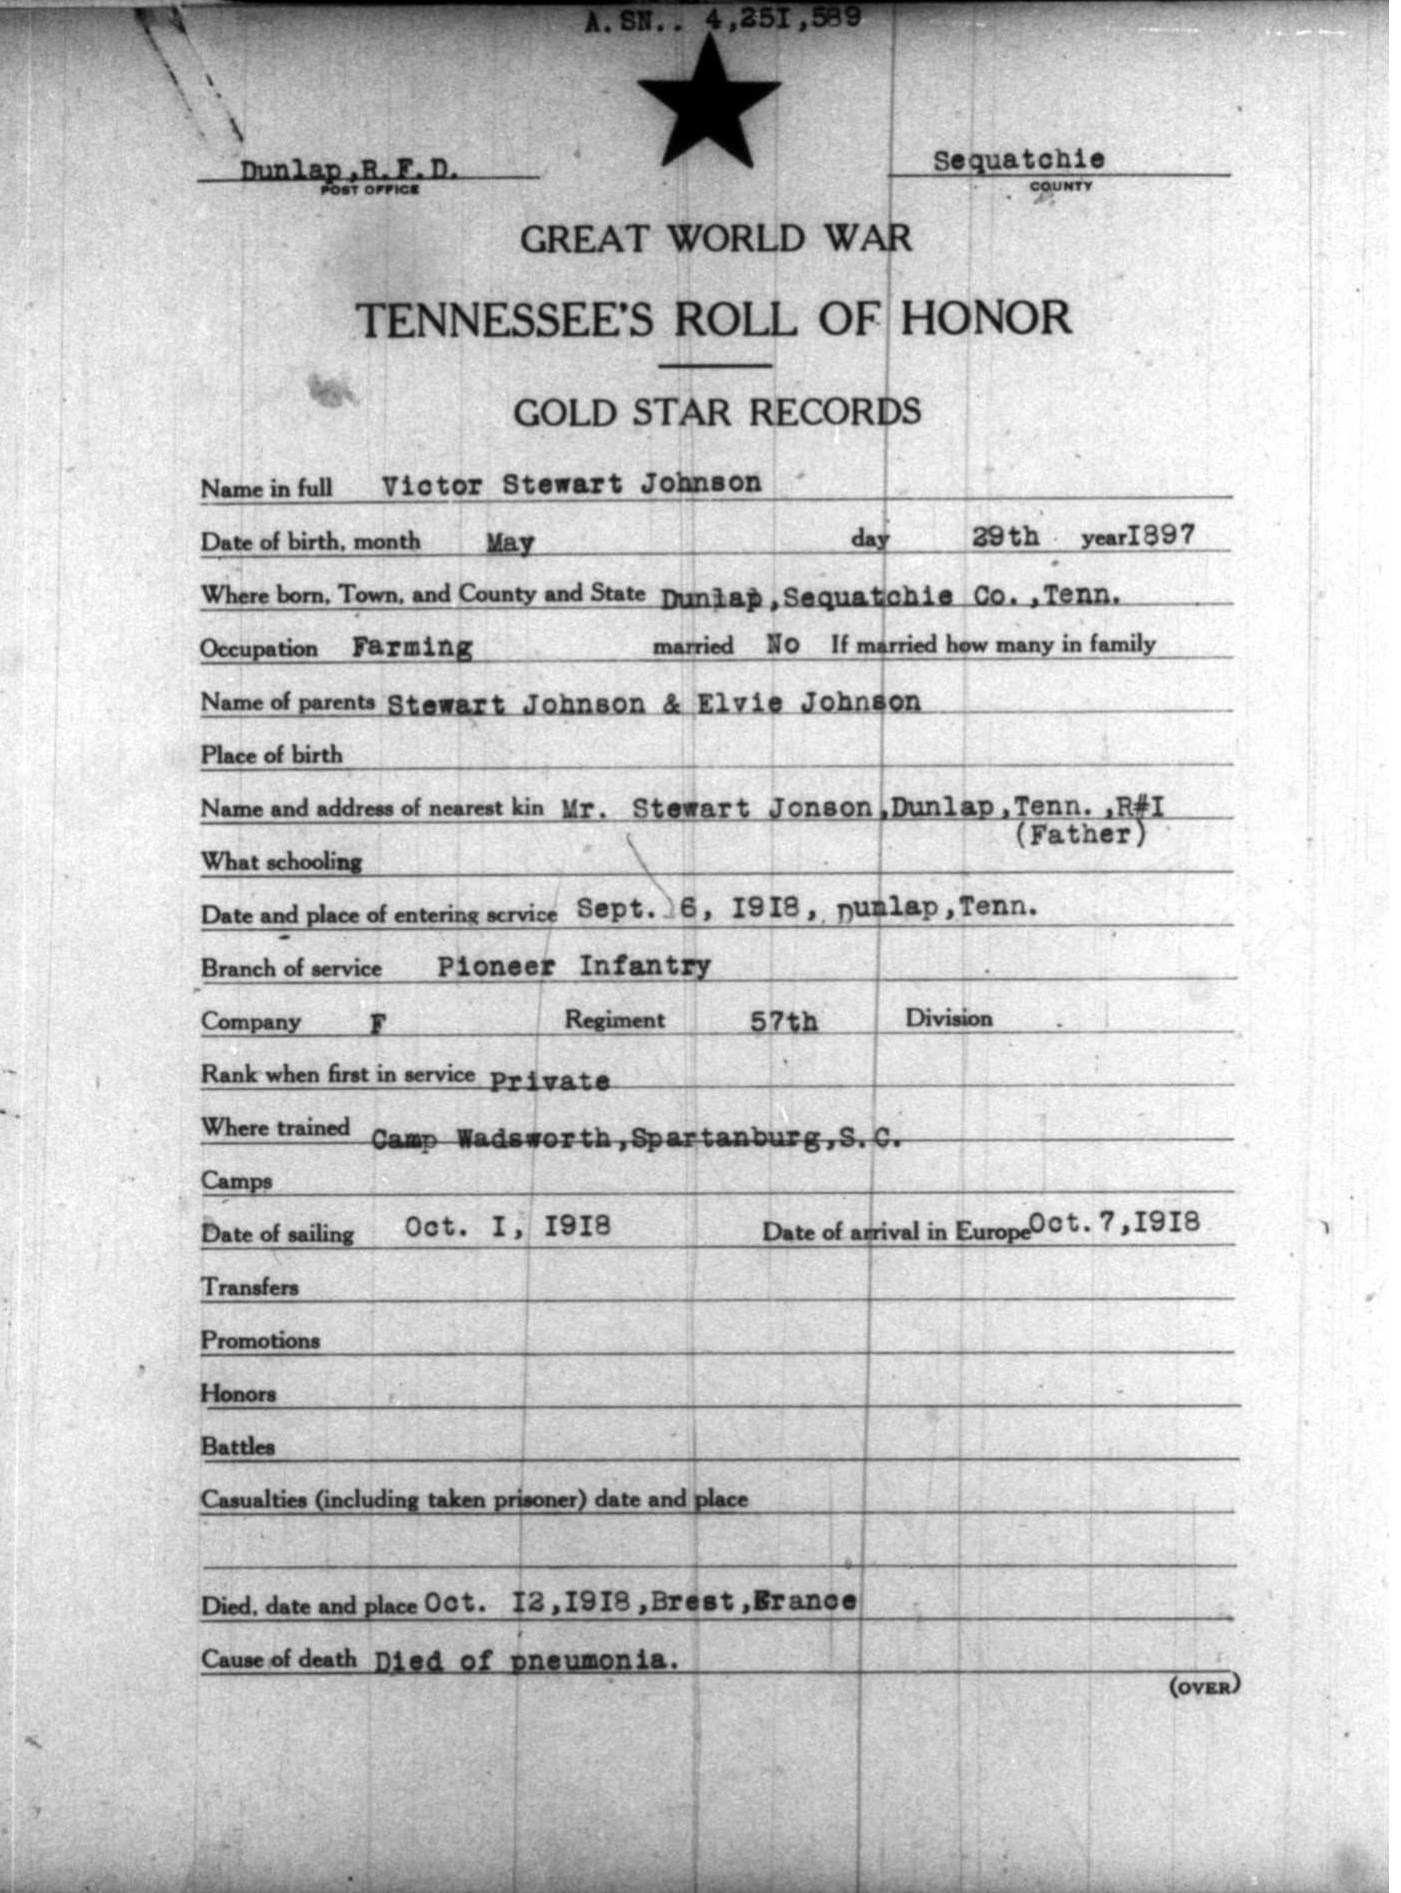 A.SN.. 4,25I,589
Dunlap,R.F.D. Sequatchie
POST OFFICE COUNTY
GREAT WORLD WAR
TENNESSEE'S ROLL OF HONOR
GOLD STAR RECORDS
Name in full Victor Stewart Johnson
Date of birth, month May day 29th year I897
Where born, Town, and County and State Dunlap,Sequatchie Co.,Tenn.
Occupation Farming married No If married how many in family
Name of parents Stewart Johnson & Elvie Johnson
Place of birth
Name and address of nearest kin Mr. Stewart Jonson,Dunlap,Tenn.,R#I
(Father)
What schooling
Date and place of entering service Sept. 6, I9I8, Dunlap,Tenn.
Branch of service Pioneer Infantry
Company F Regiment 57th Division
Rank when first in service Private
Where trained Camp Wadsworth,Spartanburg,S.C.
Camps
Date of sailing Oct. I, I9I8 Date of arrival in Europe Oct.7,I9I8
Transfers
Promotions
Honors
Battles
Casualties (including taken prisoner) date and place
Died, date and place Oct. I2,I9I8,Brest,France
Cause of death Died of pneumonia.
(OVER)